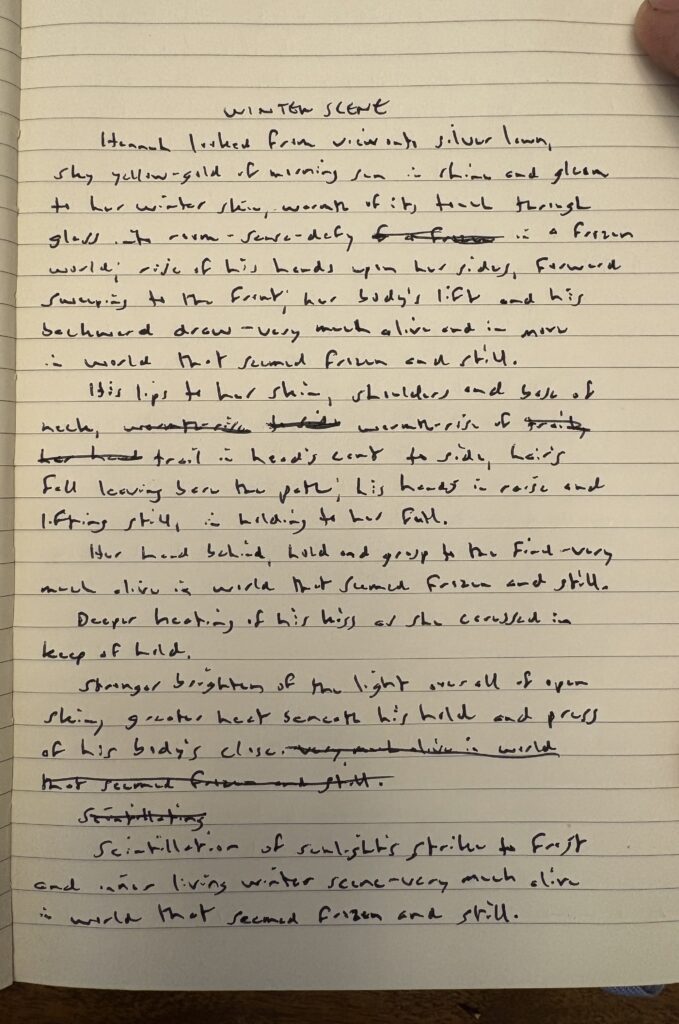 WINTER SCENE
Hannah looked from view onto silver lawn,
sky yellow-gold of morning sun in shine and gleam
to her winter skin, warmth of its touch through
glass into room-sense-defy of a frozen in a frozen
world; rise of his hands upon her sides, forward
sweeping to the front; her body's lift and his
backward draw-very much alive and in move
in world that seemed frozen and still.
His lips to her skin, shoulders and base of
neck, warmth-rise to side warmth-rise of trail,
her head trail in head's cant to side, hair's
fall leaving bare the path; his hands in raise and
lifting still, in holding to her full.
Her hand behind, hold and grasp to the find-very
much alive in world that seemed frozen and still.
Deeper heating of his kiss as she caressed in
keep of hold.
Stronger brighten of the light over all of open
skin; greater heat beneath his hold and press
of his body's close. very much alive in world
that seemed frozen and still.
Scintillating
Scintillation of sunlight's strike to frost
and inner living winter scene-very much alive
in world that seemed frozen and still.